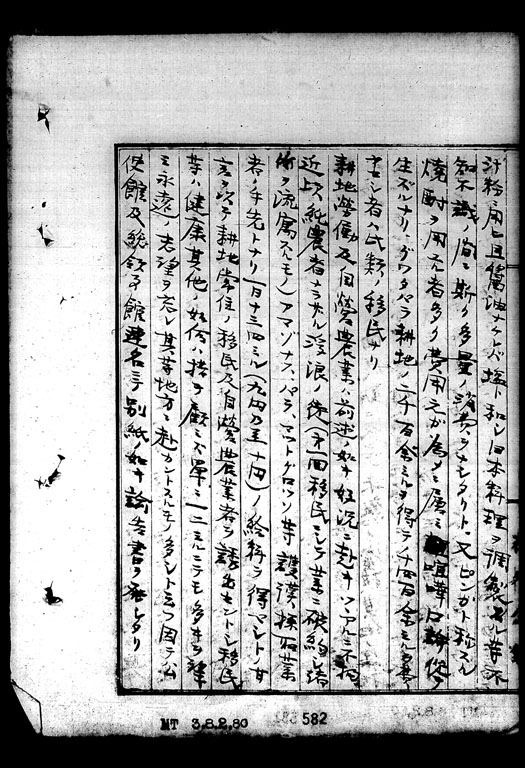 汁粉ニ用ヒ且醤油ナケレバ塩ト和シ日本料理ヲ調製スル等不
知不識ノ間ニ斯ク多量ノ消費ヲナシタリト又ピンガト称スル
焼酎ヲ用フル者多ク費用之ガ為メニ層ミ喧嘩口論ヲ
生ズルナリグワタパラ耕地ノ二千百余ミルヲ得テ千四百余ミルヲ
ナセシ者ハ此類ノ移民ナリ
耕地労働及自営農業ハ前述ノ如キ状況ニ赴キツツアルニ不拘
近頃純農者ナラザル浮浪ノ徒(第一回移民ニシテ業ニ破約シ諸
所ヲ流寓スルモノ)アマゾナス、パラ、マットグロッソ等護謨採取業
者ノ手先トナリ一日十三四ミル(九円乃至十円)ノ給料ヲ得ベシトノ甘
言ヲ以テ耕地常住ノ移民及自営農業者ヲ誘出セントシ移民
等ハ健康其他ノ如何ハ措テ顧ミズ単ニ一二ミルニテモ多キヲ望
ミ永遠ノ志望ヲ忘レ其等地方ニ赴カントスルモノ多シト云フ因テ公
使館及総領事館連名ニテ別紙ノ如キ諭告書ヲ発シタリ
MT 3.8.2.80
582